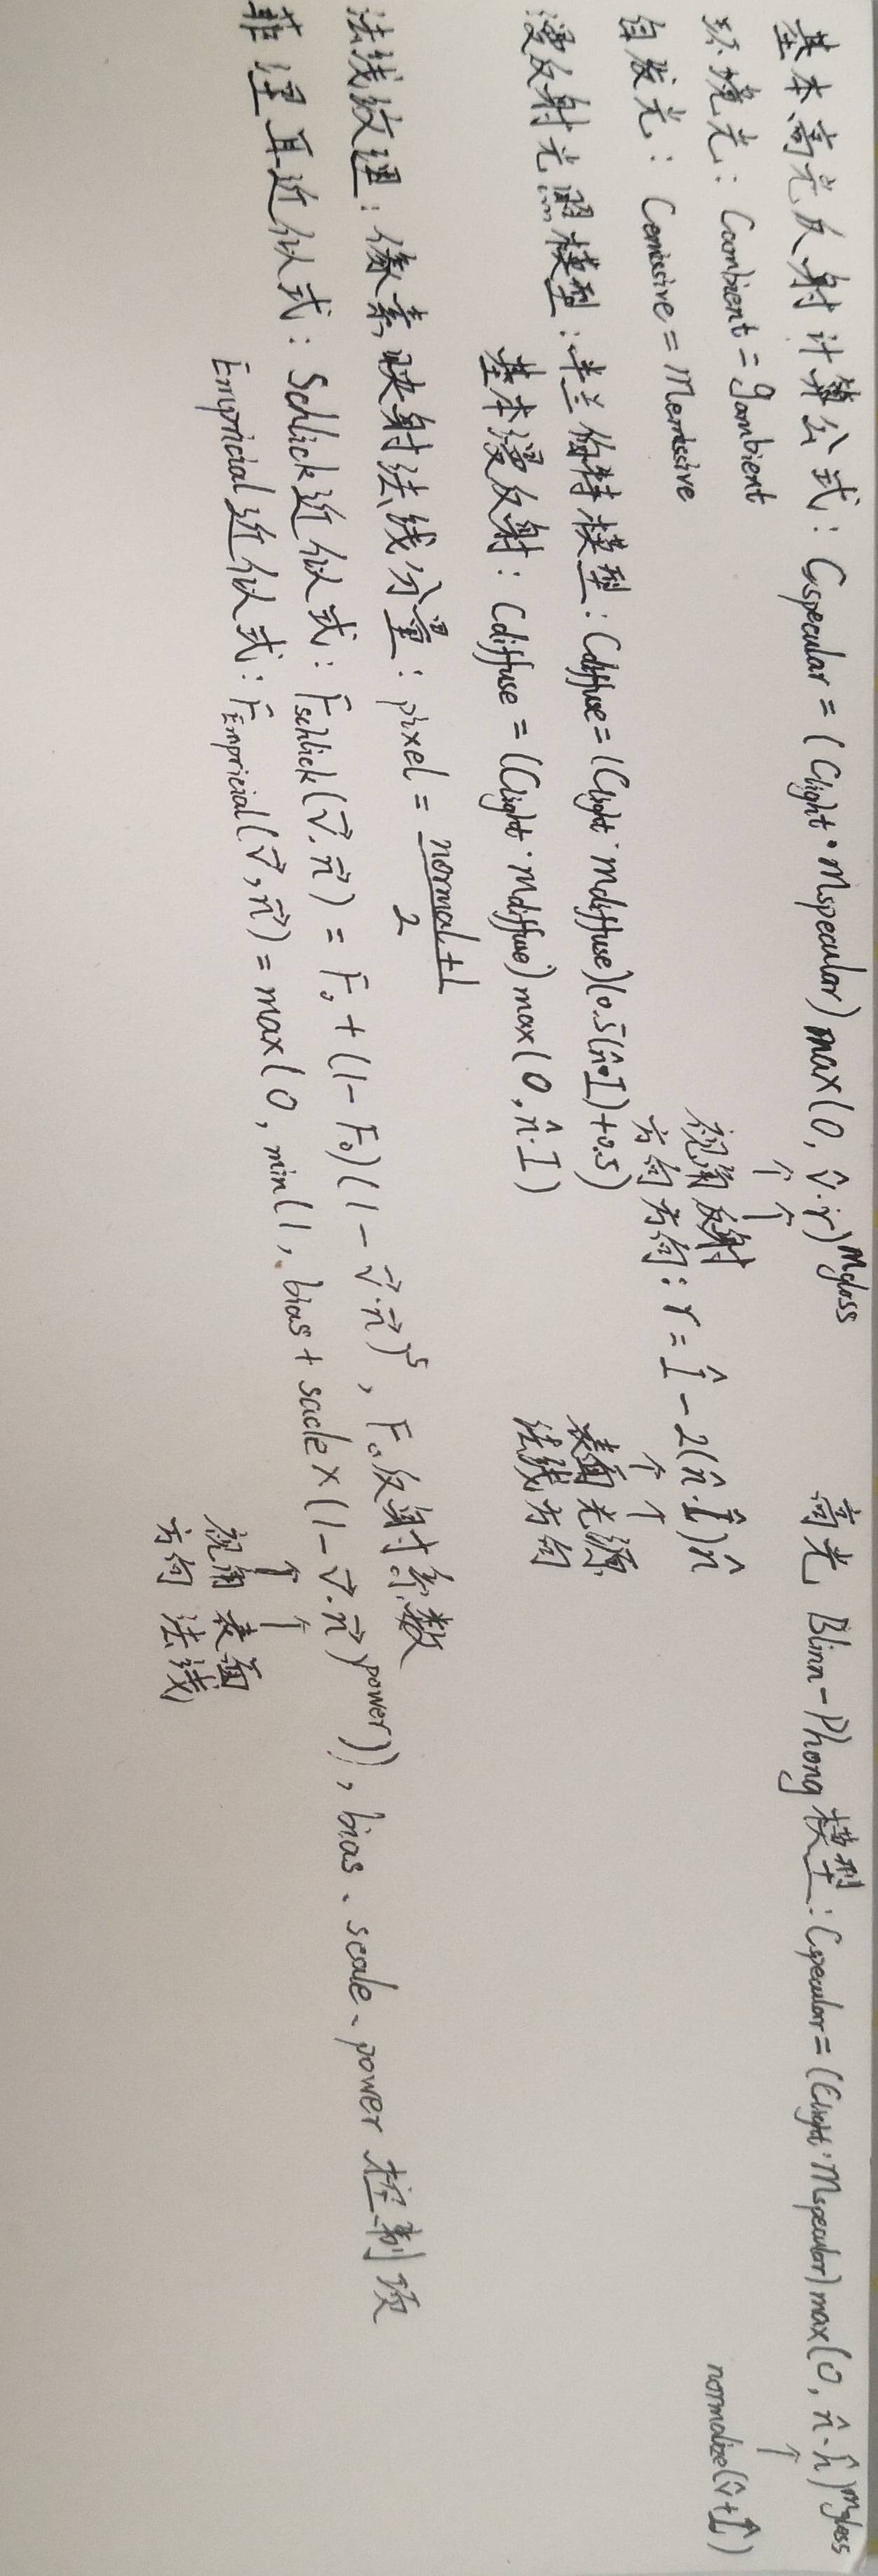 基本高光反射计算公式: Cspecular = (Clight · mspecular) max(0, v̂·r)^mgloss
高光 Blinn-Phong 模型: Cspecular = (Clight · mspecular) max(0, n̂·ĥ)^mgloss
↑ ↑
↑
视角 反射
方向 方向: r = Î - 2(n̂·Î)n̂
normalize(v̂+Î)
↑ ↑
表面 光源
法线 方向
环境光: Cambient = gambient
自发光: Cemissive = memissive
漫反射光照模型: 半兰伯特模型: Cdiffuse = (Clight · mdiffuse)(0.5(n̂·I)+0.5)
基本漫反射: Cdiffuse = (Clight · mdiffuse) max(0, n̂·I)
法线纹理: 像素映射法线分量: pixel = (normal+1)/2
菲涅耳近似式: Schlick近似式: Fschlick(v⃗, n⃗) = F₀ + (1 - F₀)(1 - v⃗·n⃗)^5, F₀反射系数
Empricial近似式: FEmpricial(v⃗, n⃗) = max(0, min(1, bias + sacle × (1 - v⃗·n⃗)^power)), bias、scale、power 控制项
↑ ↑
视角 表面
方向 法线